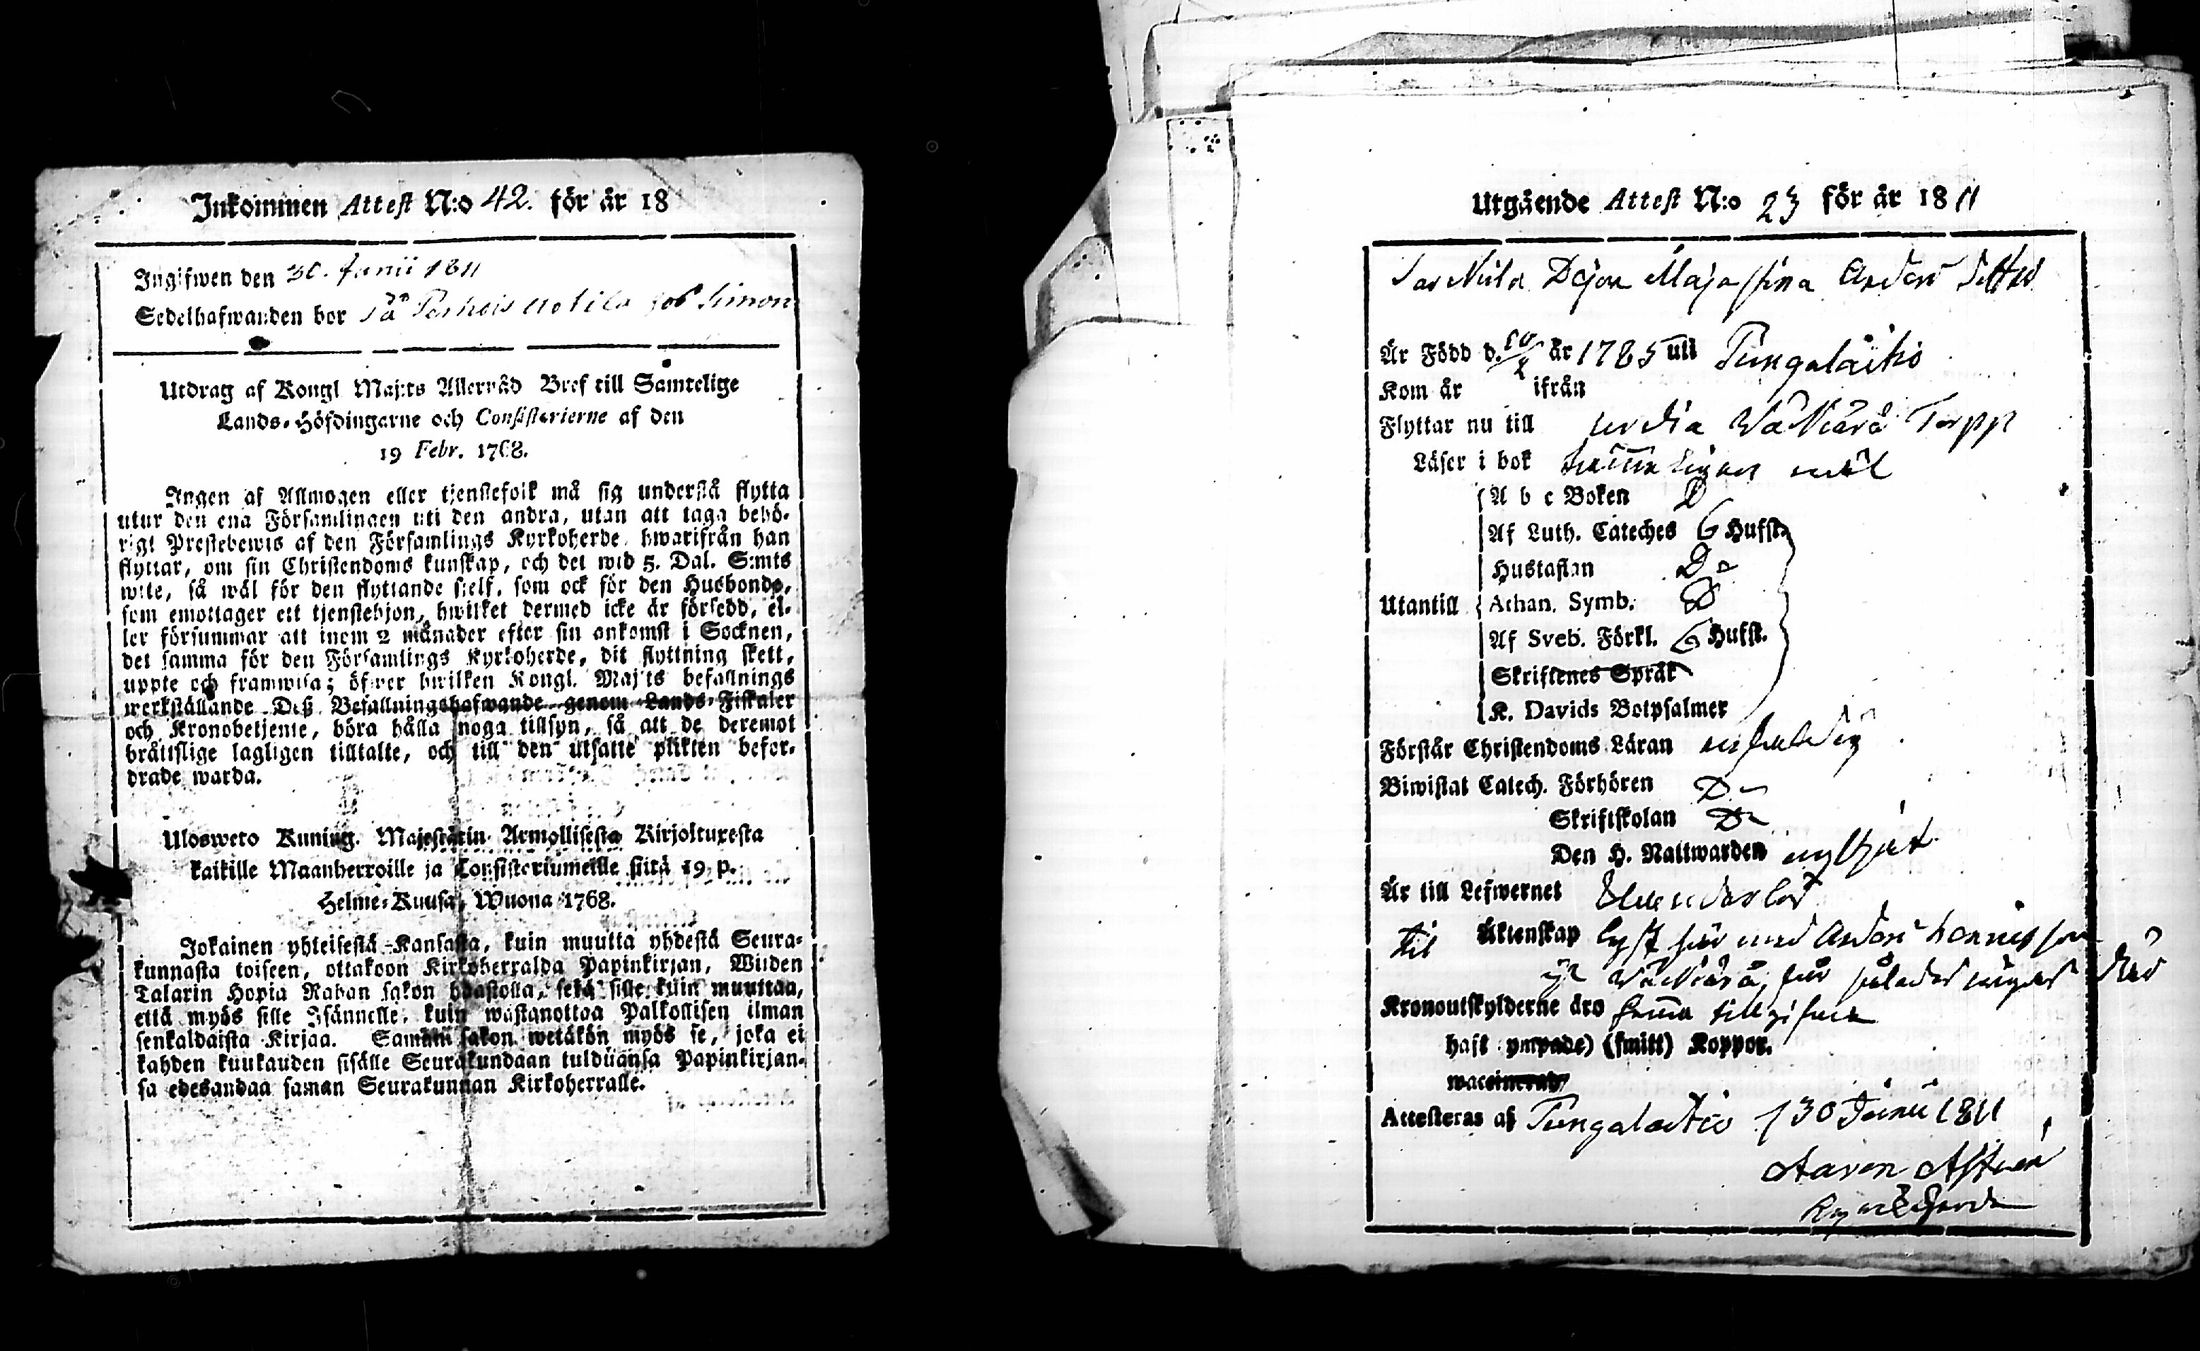 Inkommen Attest N:o 42. för år 18
Ingifwen den 30. Junii 1811
Sedelhafwanden bor På
Utdrag af Kongl Maj:ts Allernåd Bref till Samtelige
Lands-Höfdingarne och Consistorierne af den
19 Febr. 1768.
Ingen af Allmogen eller tjenstefolk må sig understå flytta
utur den ena Församlingen uti den andra, utan att taga behö-
rigt Prestebewis af den Församlings Kyrkoherde hwarifrån han
flyttar, om sin Christendoms kunskap, och det wid 5. Dal. S:mts
wite, så wäl för den flyttande sjelf, som ock för den Husbonde,
som emottager ett tjenstehjon, hwilket dermed icke är försedd, el-
ler försummar att inom 2 månader efter sin ankomst i Socknen,
det samma för den Församlings Kyrkoherde, dit flyttning skett,
uppte och framwisa; öfwer hwilken Kongl. Maj:ts befallnings
werkställande Deß Befallningshafwande genom Lands-Fiskaler
och Kronobetjente, böra hålla noga tillsyn, så att de deremot
bråttslige lagligen tilltalte, och till den utsatte plikten befor-
drade warda.
Ulosweto Kuning. Majestätin Armollisesta Kirjoituxesta
kaikille Maanherroille ja Consistoriumeille siitä 19 p.
Helme-Kuusa, Wuona 1768.
Jokainen yhteisestä Kansasta, kuin muutta yhdestä Seura-
kunnasta toiseen, ottakoon Kirkoherralda Papinkirjan, Wiiden
Talarin Hopia Rahan sakon haastolla, sekä sille kuin muuttaa,
että myös sille Isännelle, kuin wastanottaa Palkollisen ilman
senkaldaista Kirjaa. Samän sakon wetäkön myös se, joka ei
kahden kuukauden sisälle Seurakundaan tulduansa Papinkirjan-
sa edesandaa saman Seurakunnan Kirkoherralle.
Utgående Attest N:o 23 för år 1811
Pigan Maja Stina Anders dotter
Är Född d. 10/2 år 1785 uti Pungalaitio
Kom år ifrån
Flyttar nu till Torpp
Läser i bok
A b c Boken D
Af Luth. Cateches 6 Hufst.
Hustaflan Do
Utantill Athan. Symb. D
Af Sveb. Förkl. 6 Hufst.
Skriftenes Språk
K. Davids Botpsalmer
Förstår Christendoms Läran enfaldig
Biwistat Catech. Förhören Do
Skriftskolan Do
Den H. Nattwarden nyttjat
Är till Lefwernet
Til Äktenskap lyst med Anders

Kronoutskylderne äro
haft ympade) (smitt) Koppor.
waccinerad
Attesteras af Pungalaitio d 30 Junii 1811